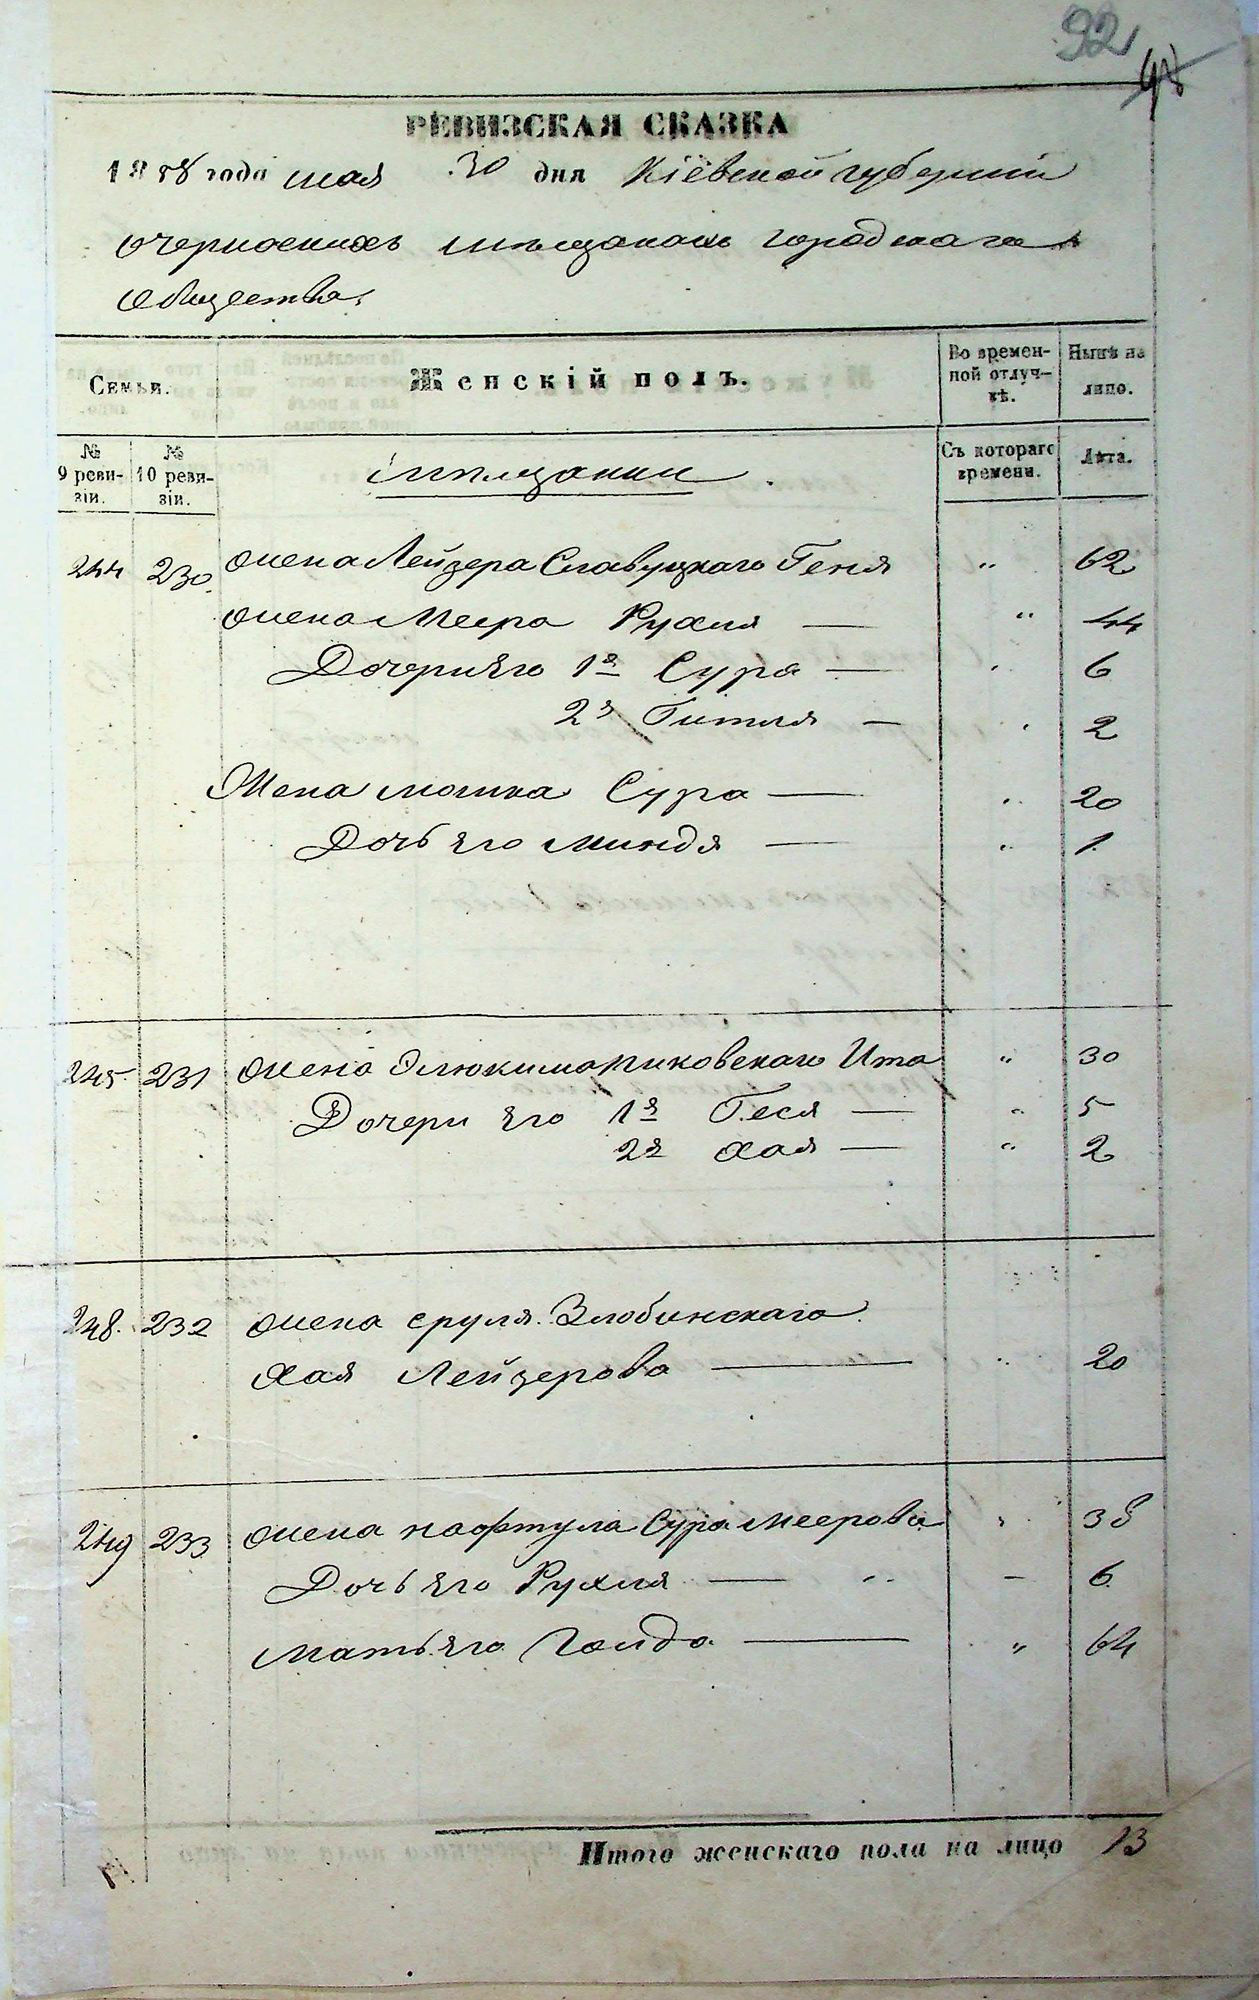 92
РЕВИЗСКАЯ СКАЗКА
1858 года мая 30 дня Кіевской губерніи
мѣщанахъ городскаго
общества.
Семьи. Женскій полъ. Во времен- Нынѣ на
ной отлуч- лицо.
кѣ.
№ № Мѣщанки Съ котораго Лѣта.
9 реви- 10 реви- времени.
зіи. зіи.
244 230. жена Лейзера Славуцкаго Геня „ 62
жена Меера Рухля — „ 44
Дочери его 1я Сура — „ 6
2я Гитля — „ 2
Жена мошка Сура — „ 20
Дочь его Миндя — „ 1.
245 231 жена Ита „ 30
Дочери его 1я Геся — „ 5
2я Хая — „ 2
248. 232 жена сруля Злобинскаго
Хая Лейзерова — „ 20
249 233 жена нафтула Сура меерова „ 38
Дочь его Рухля — „ — 6.
мать его Голда — „ 64
Итого женскаго пола на лицо 13